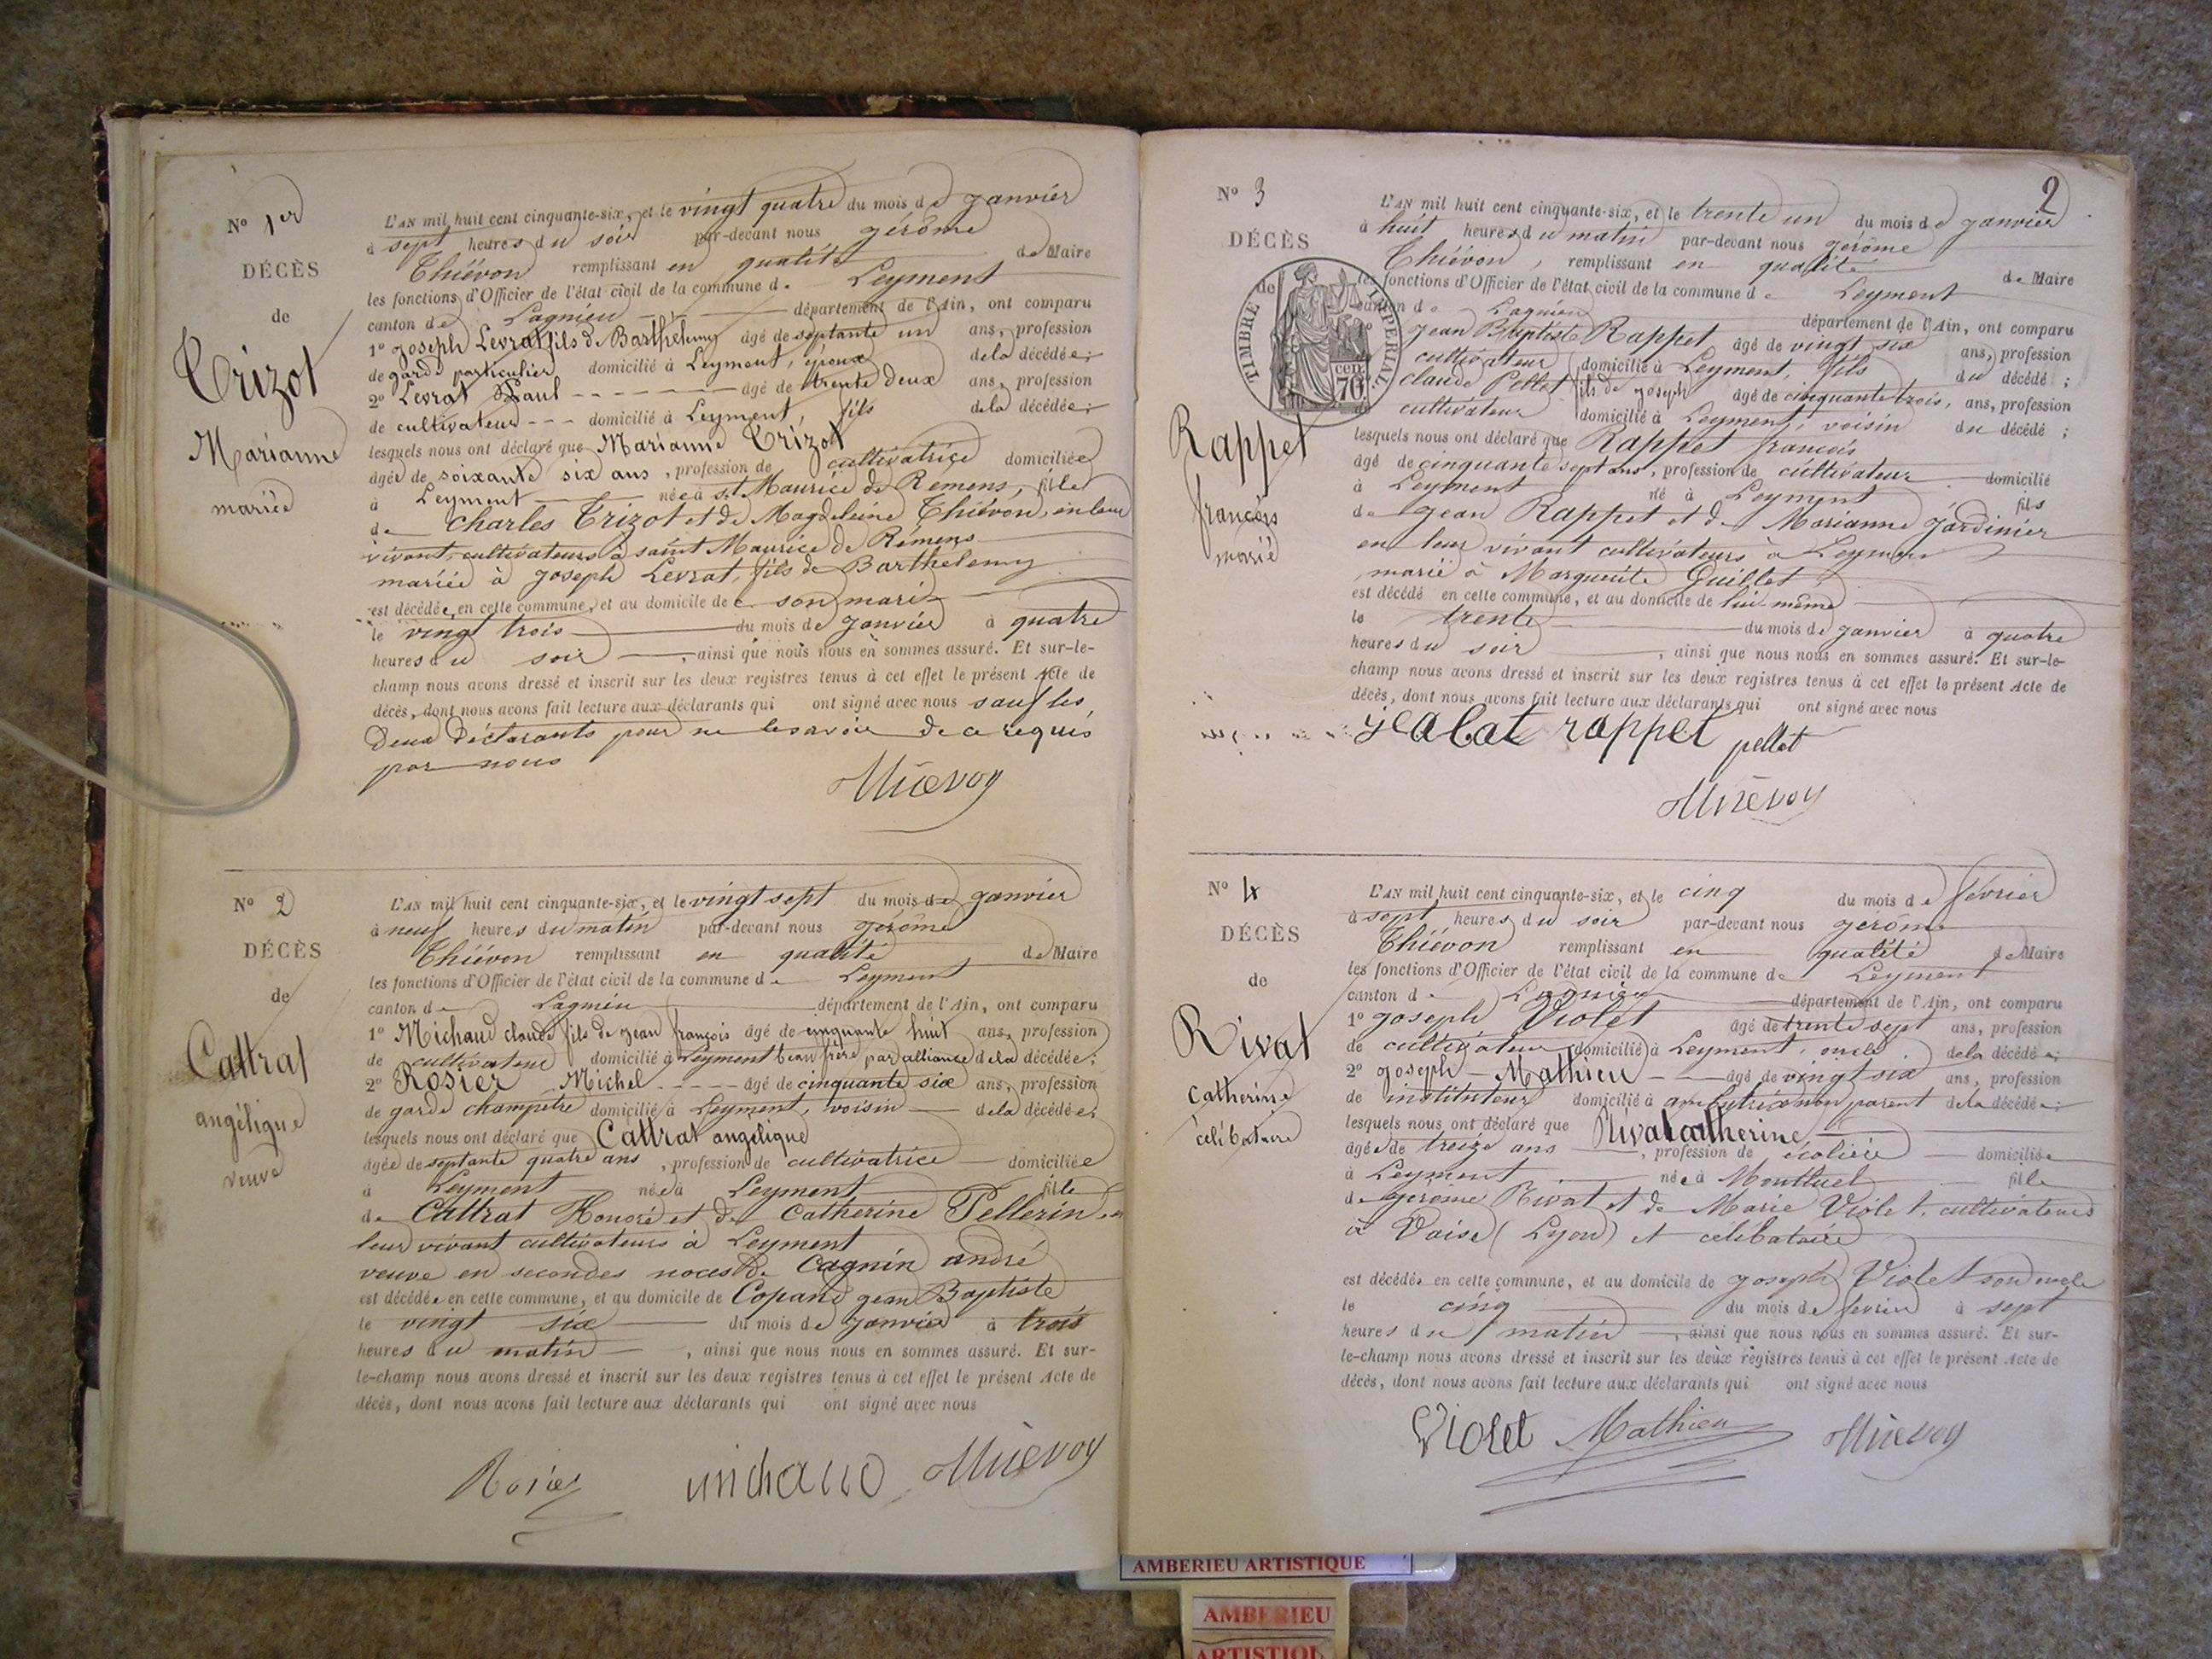 N° 1er
DÉCÈS
de
Trizot
Marianne
mariée
L'AN mil huit cent cinquante-six, et le vingt quatre du mois de janvier
à sept heures du soir par-devant nous gérôme
Thiévon remplissant en qualité de Maire
les fonctions d'Officier de l'état civil de la commune de Leyment
canton de Lagnieu département de l'Ain, ont comparu
1° joseph Levrat fils de Barthelemy âgé de septante un ans, profession
de garde particulier domicilié à Leyment, époux de la décédée;
2° Levrat Paul âgé de trente deux ans, profession
de cultivateur domicilié à Leyment, fils de la décédée;
lesquels nous ont déclaré que Marianne Trizot
âgée de soixante six ans, profession de cultivatrice domiciliée
à Leyment née à St Maurice de Remens, fille
de Charles Trizot et de Magdeleine Thiévon, en leur
vivant, cultivateurs à saint Maurice de Rémens
mariée à joseph Levrat, fils de Barthelemy
est décédée, en cette commune, et au domicile de son mari
le vingt trois du mois de janvier à quatre
heures du soir, ainsi que nous nous en sommes assuré. Et sur-le-
champ nous avons dressé et inscrit sur les deux registres tenus à cet effet le présent Acte de
décès, dont nous avons fait lecture aux déclarants qui ont signé avec nous sauf les
deux déclarants pour ne le savoir de ce requis
par nous
Thiévon
N° 2
DÉCÈS
de
Cattrat
angélique
veuve
L'AN mil huit cent cinquante-six, et le vingt sept du mois de janvier
à neuf heures du matin par-devant nous gérôme
Thiévon remplissant en qualité de Maire
les fonctions d'Officier de l'état civil de la commune de Leyment
canton de Lagnieu département de l'Ain, ont comparu
1° Michaud claude fils de jean françois âgé de cinquante huit ans, profession
de cultivateur domicilié à Leyment beau frère par alliance de la décédée;
2° Rosier Michel âgé de cinquante six ans, profession
de garde champêtre domicilié à Leyment, voisin de la décédée;
lesquels nous ont déclaré que Cattrat angélique
âgée de septante quatre ans, profession de cultivatrice domiciliée
à Leyment née à Leyment fille
de Cattrat Honoré et de Catherine Pellerin en
leur vivant cultivateurs à Leyment
veuve en secondes noces de Cagnin andré
est décédée en cette commune, et au domicile de Copand jean Baptiste
le vingt six du mois de janvier à trois
heures du matin, ainsi que nous nous en sommes assuré. Et sur-
le-champ nous avons dressé et inscrit sur les deux registres tenus à cet effet le présent Acte de
décès, dont nous avons fait lecture aux déclarants qui ont signé avec nous
Rosier michaud Thiévon
2
N° 3
DÉCÈS
de
TIMBRE IMPERIAL
70 cen.
Rappet
françois
marié
L'AN mil huit cent cinquante-six, et le trente un du mois de janvier
à huit heures du matin par-devant nous gérôme
Thiévon, remplissant en qualité de Maire
les fonctions d'Officier de l'état civil de la commune de Leyment
canton de Lagnieu département de l'Ain, ont comparu
1° jean Baptiste Rappet âgé de vingt six ans, profession
cultivateur domicilié à Leyment, fils du décédé;
claude Pellet fils de joseph âgé de cinquante trois, ans, profession
de cultivateur domicilié à Leyment, voisin du décédé;
lesquels nous ont déclaré que Rappet françois
âgé de cinquante sept ans, profession de cultivateur domicilié
à Leyment né à Leyment fils
de jean Rappet et de Marianne jardinier
en leur vivant cultivateurs à Leyment
marié à Marguerite Quillet
est décédé en cette commune, et au domicile de lui-même
le trente du mois de janvier à quatre
heures du soir, ainsi que nous nous en sommes assuré. Et sur-le-
champ nous avons dressé et inscrit sur les deux registres tenus à cet effet le présent Acte de
décès, dont nous avons fait lecture aux déclarants qui ont signé avec nous
rappet pellet
Thiévon
N° 4
DÉCÈS
de
Rivat
Catherine
célibataire
L'AN mil huit cent cinquante-six, et le cinq du mois de février
à sept heures du soir par-devant nous gérôme
Thiévon remplissant en qualité de Maire
les fonctions d'Officier de l'état civil de la commune de Leyment
canton de Lagnieu département de l'Ain, ont comparu
1° joseph Violet âgé de trente sept ans, profession
de cultivateur domicilié à Leyment, oncle de la décédée;
2° joseph Mathieu âgé de vingt six ans, profession
de instituteur domicilié à ambutrix non parent de la décédée;
lesquels nous ont déclaré que Rivat catherine
âgée de treize ans, profession de écolière domiciliée
à Leyment née à Montluel fille
de gérôme Rivat et de Marie Violet, cultivateurs
à Vaise (Lyon) et célibataire
est décédée en cette commune, et au domicile de joseph Violet son oncle
le cinq du mois de fevrier à sept
heures du matin, ainsi que nous nous en sommes assuré. Et sur-
le-champ nous avons dressé et inscrit sur les deux registres tenus à cet effet le présent Acte de
décès, dont nous avons fait lecture aux déclarants qui ont signé avec nous
Violet Mathieu Thiévon
AMBERIEU ARTISTIQUE
AMBERIEU